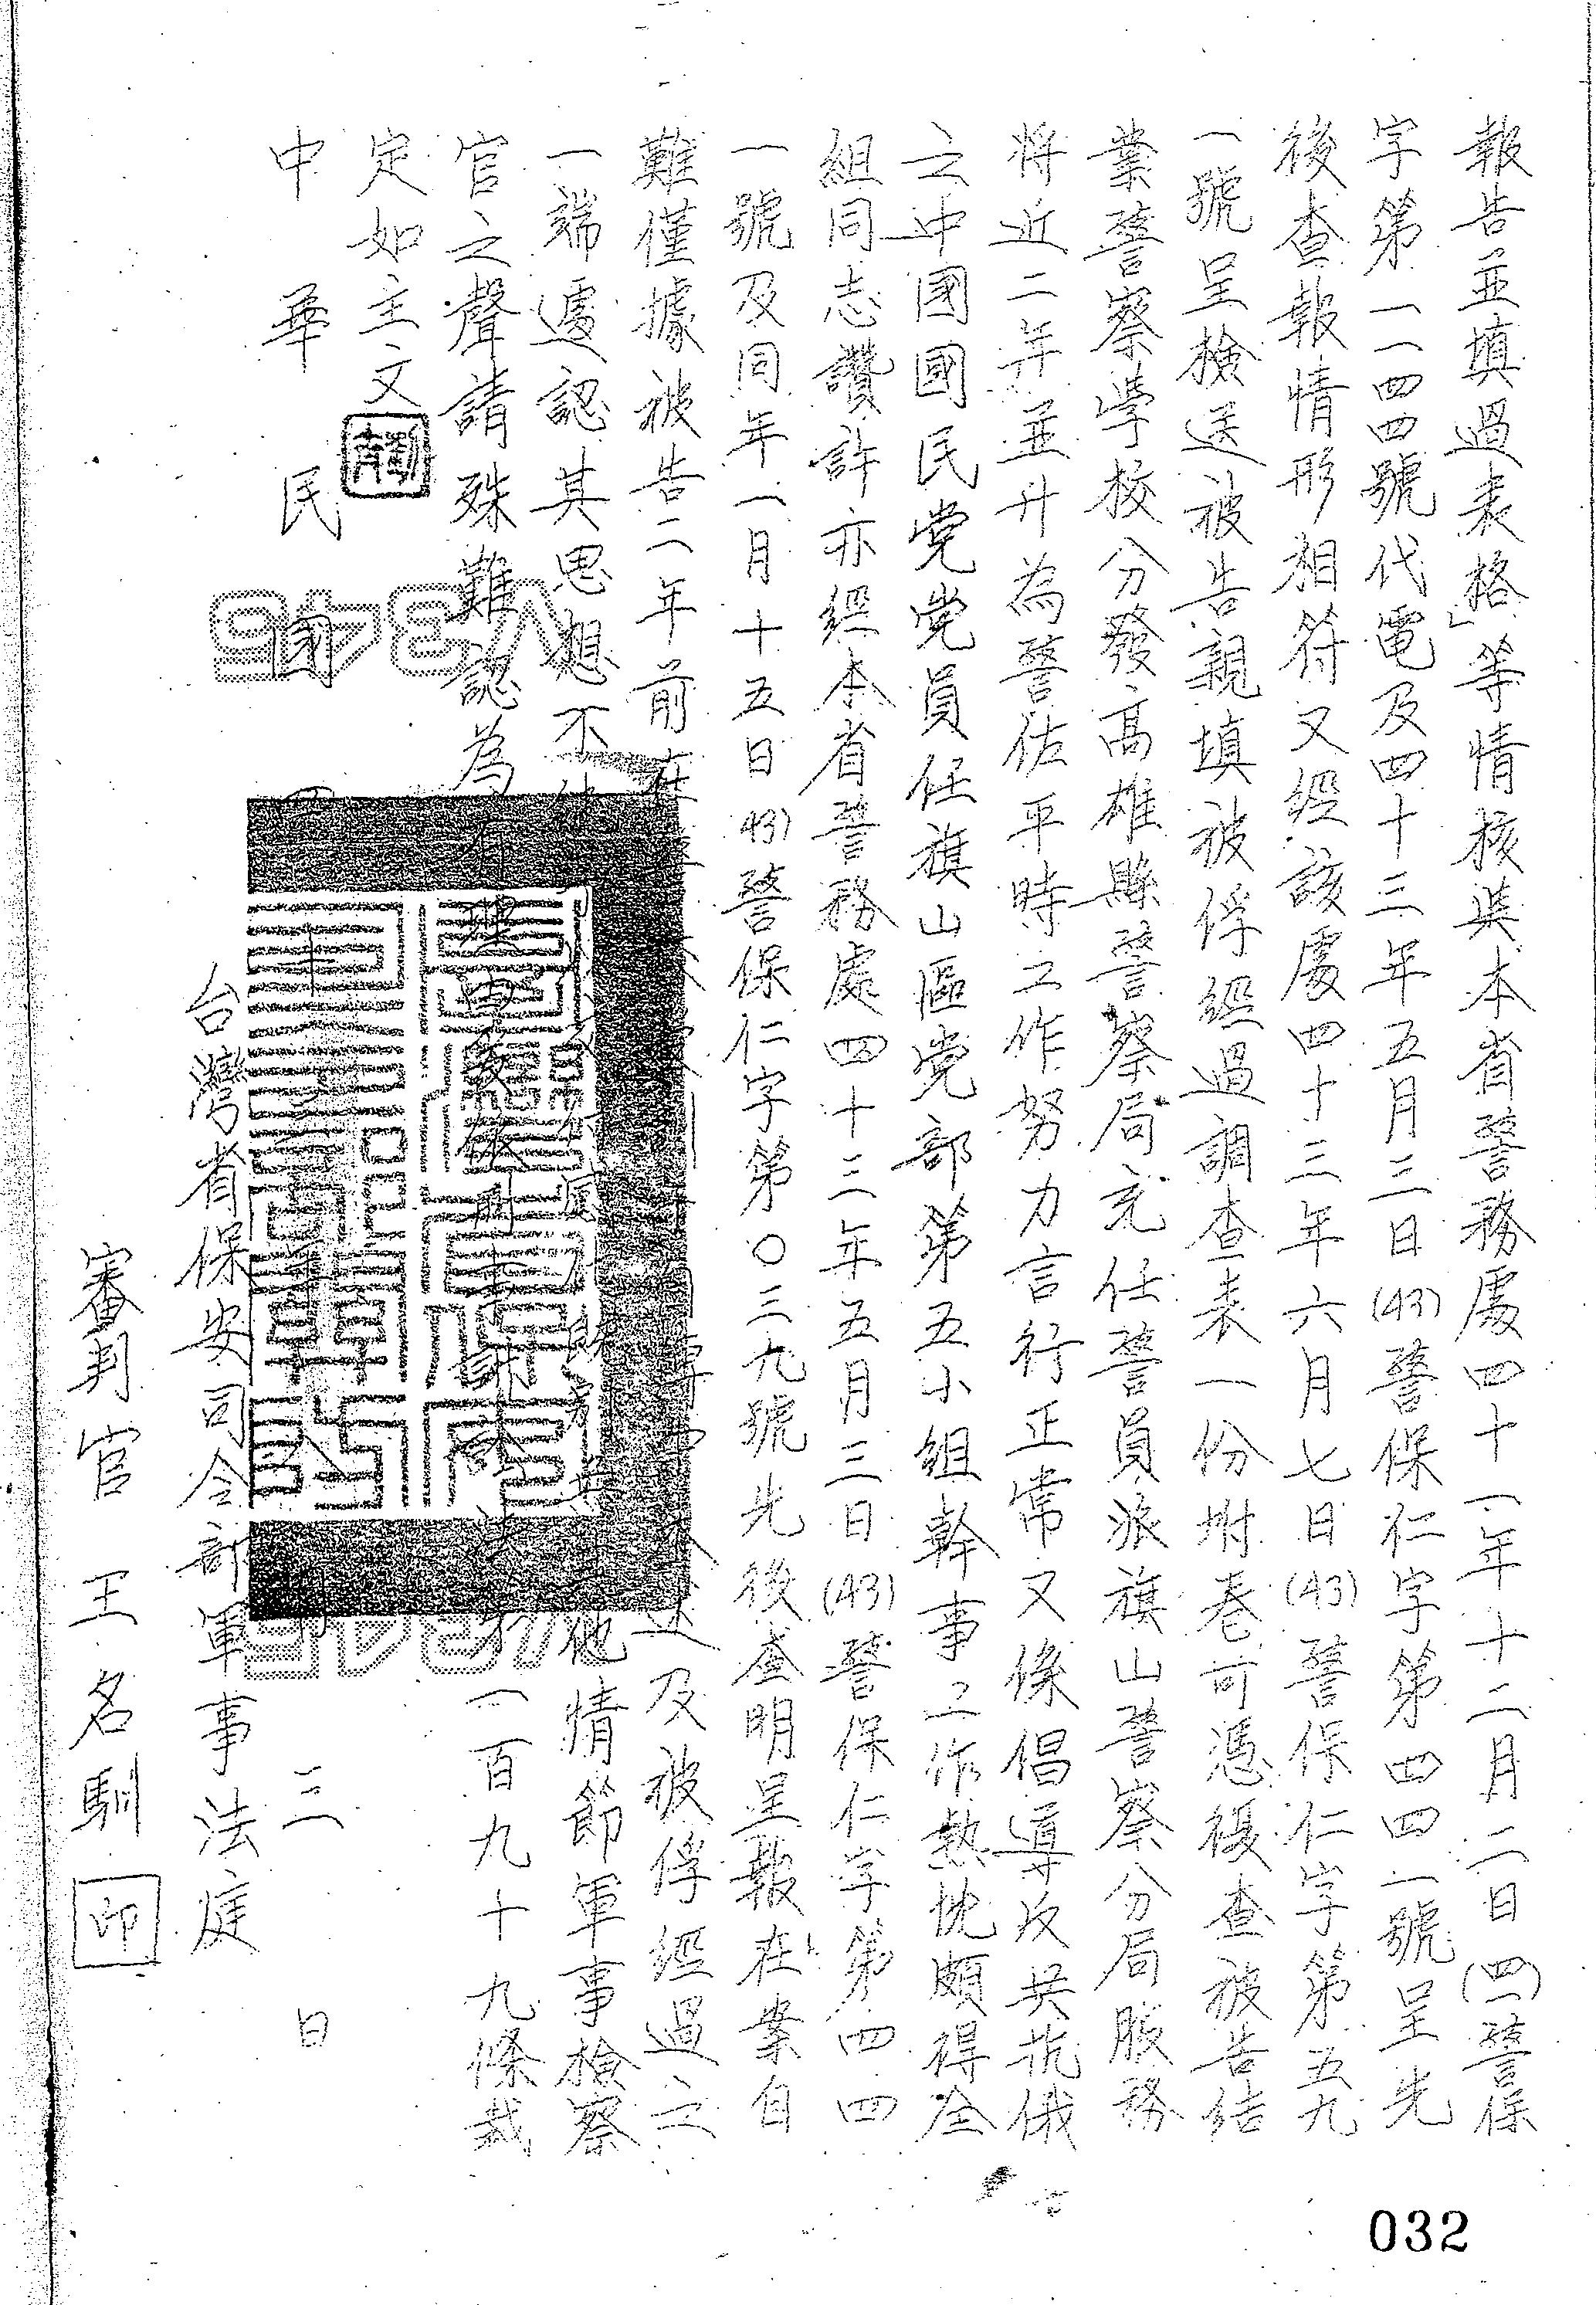 報告並填過表格」等情核與本省警務處四十一年十二月二日(四一)警保
字第一一四四號代電及四十三年五月三日(43)警保仁字第四四一號呈先
後查報情形相符又經該處四十三年六月七日(43)警保仁字第五九
一號呈檢送被告親填被俘經過調查表一份附卷可憑復查被告結
業警察學校分發高雄縣警察局充任警員派旗山警察分局服務
將近二年並升為警佐平時工作努力言行正常又係倡導反共抗俄
之中國國民党党員任旗山區党部第五小組幹事工作熱忱頗得全
組同志讚許亦經本省警務處四十三年五月三日(43)警保仁字第四四
一號及同年一月十五日43)警保仁字第〇三九號先後查明呈報在案自
難僅據被告二年前在述及被俘經過之
一端遽認其思想不他情節軍事檢察
官之聲請殊難認為有一百九十九條裁
定如主文
中華民國四三日
台灣省保安司令部軍事法庭
審判官王名馴印
032